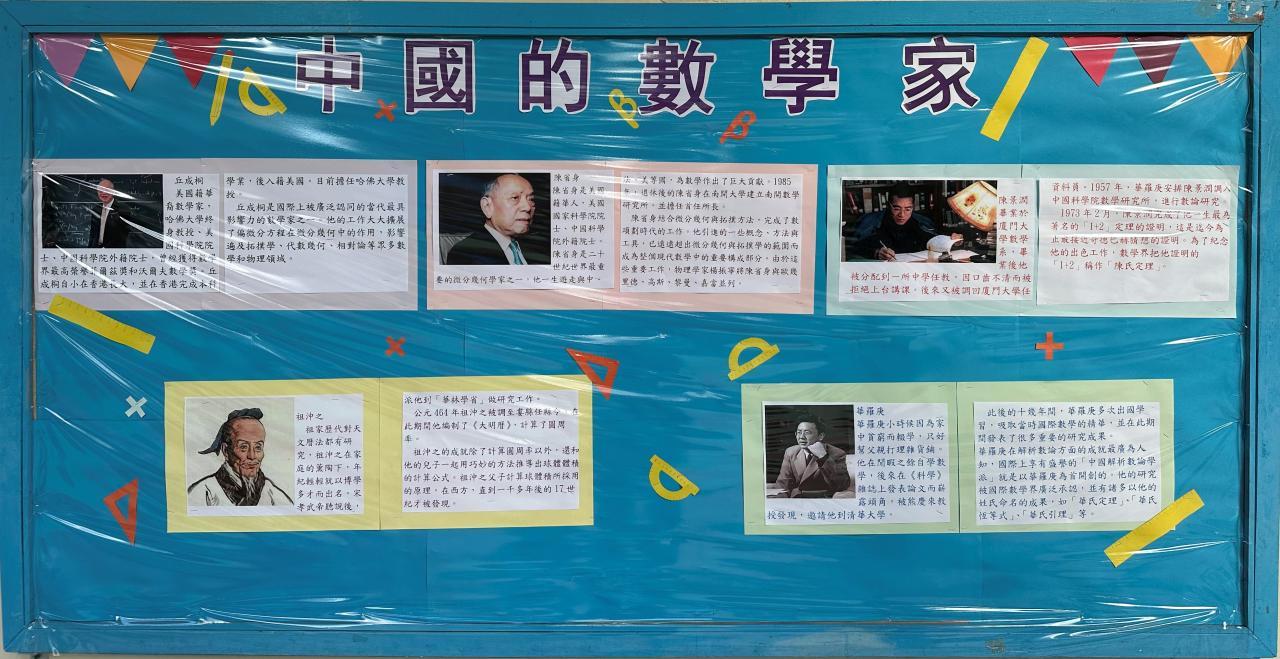 中國的數學家
丘成桐
美國籍華
裔數學家，
哈佛大學終
身教授、美
國科學院院
士、中國科學院外籍院士，曾經獲得數學
界最高榮譽菲爾茲獎和沃爾夫數學獎。丘
成桐自小在香港長大，並在香港完成本科
學業，後入籍美國。目前擔任哈佛大學教
授。
丘成桐是國際上被廣泛認同的當代最具
影響力的數學家之一。他的工作大大擴展
了偏微分方程在微分幾何中的作用，影響
遍及拓撲學、代數幾何、相對論等眾多數
學和物理領域。
陳省身
陳省身是美國
籍華人、美國
國家科學院院
士、中國科學
院外籍院士。
陳省身是二十
世紀世界最重
要的微分幾何學家之一，他一生遊走與中、
法、美等國，為數學作出了巨大貢獻。1985
年，退休後的陳省身在南開大學建立南開數學
研究所，並擔任首任所長。
陳省身結合微分幾何與拓撲方法，完成了數
項劃時代的工作。他引進的一些概念、方法與
工具，已遠遠超出微分幾何與拓撲學的範圍而
成為整個現代數學中的重要構成部分。由於這
些重要工作，物理學家楊振寧將陳省身與歐幾
里德、高斯、黎曼、嘉當並列。
陳景潤
畢業於
廈門大
學數學
系，畢
業後他
被分配到一所中學任教，因口齒不清而被
拒絕上台講課。後來又被調回廈門大學任
資料員。1957年，華羅庚安排陳景潤調入
中國科學院數學研究所，進行數論研究。
1973年2月，陳景潤完成了他一生最為
著名的「1+2」定理的證明，這是迄今為
止最接近哥德巴赫猜想的證明。為了紀念
他的出色工作，數學界把他證明的
「1+2」稱作「陳氏定理」。
祖沖之
祖家歷代對天
文曆法都有研
究，祖沖之在家
庭的薰陶下，年
紀輕輕就以博學
多才而出名，宋
孝武帝聽說後，
派他到「華林學省」做研究工作。
公元464年祖沖之被調至婁縣任縣令，在
此期間他編制了《大明曆》，計算了圓周
率。
祖沖之的成就除了計算圓周率以外，還和
他的兒子一起用巧妙的方法推導出球體體積
的計算公式。祖沖之父子計算球體積所採用
的原理，在西方，直到一千多年後的17世
紀才被發現。
華羅庚
華羅庚小時候因為家
中貧窮而輟學，只好
幫父親打理雜貨鋪。
他在閒暇之餘自學數
學，後來在《科學》
雜誌上發表論文而嶄
露頭角，被熊慶來教
授發現，邀請他到清華大學。
此後的十幾年間，華羅庚多次出國學
習，吸取當時國際數學的精華，並在此期
間發表了很多重要的研究成果。
華羅庚在解析數論方面的成就最廣為人
知，國際上享有盛譽的「中國解析數論學
派」就是以華羅庚為首開創的，他的研究
被國際數學界廣泛承認，並有諸多以他的
姓氏命名的成果，如「華氏定理」、「華氏
恆等式」、「華氏引理」等。